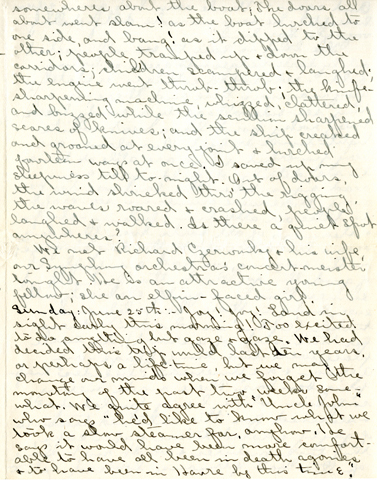 somewheres about the boat; the doors all
about went slam! as the boat lurched to
one side and bang! as it dipped to the
other; people tramped up + down the
corridors; children scampered + laughed;
the engine went throb-throb; the knife
sharpening machine whizzed, clattered
and buzzed while the scullion sharpened
scores of knives; and the ship creaked
and groaned at every joint + lurched
fourteen ways at once. I saved up my
sleepiness till to-night. Out of doors,
the wind shrieked thro' the rigging,
the waves roared + crashed, people
laughed + walked. Is there a quiet spot
anywheres?
We met Richard Czerwonky + his wife,
our Symphony orchestra's concert-meister
to-night. He is an attractive young
fellow; she an elfin-faced girl.
Sunday. June 25th. Joy! Joy! Land in
sight early this morning! Too excited
to do anything but gaze + gaze. We had
decided this trip would last ten years,
or perhaps a life-time, but we
change our minds when we forget the
monotony of the past two weeks some-
what. We quite agree with "Uncle John"
who says "He'd like to know why we
took a slow steamer for, anyhow. He
says it would have been more comfort-
able to have all been in death agonies
+ to have been in Havre by this time."